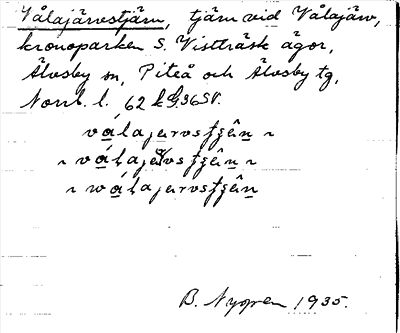 Vålajärvstjärn, tjärn vid Vålajärv,
kronoparken S. Vistträsk ägor,
Älvsby sn, Piteå och Älvsby tg,
Norrb. l. 62 k G. 36 SV.
válajęrvstję̂n
válajęrvstję̂n
wálajęrvstję̂n
B. Nygren 1935.